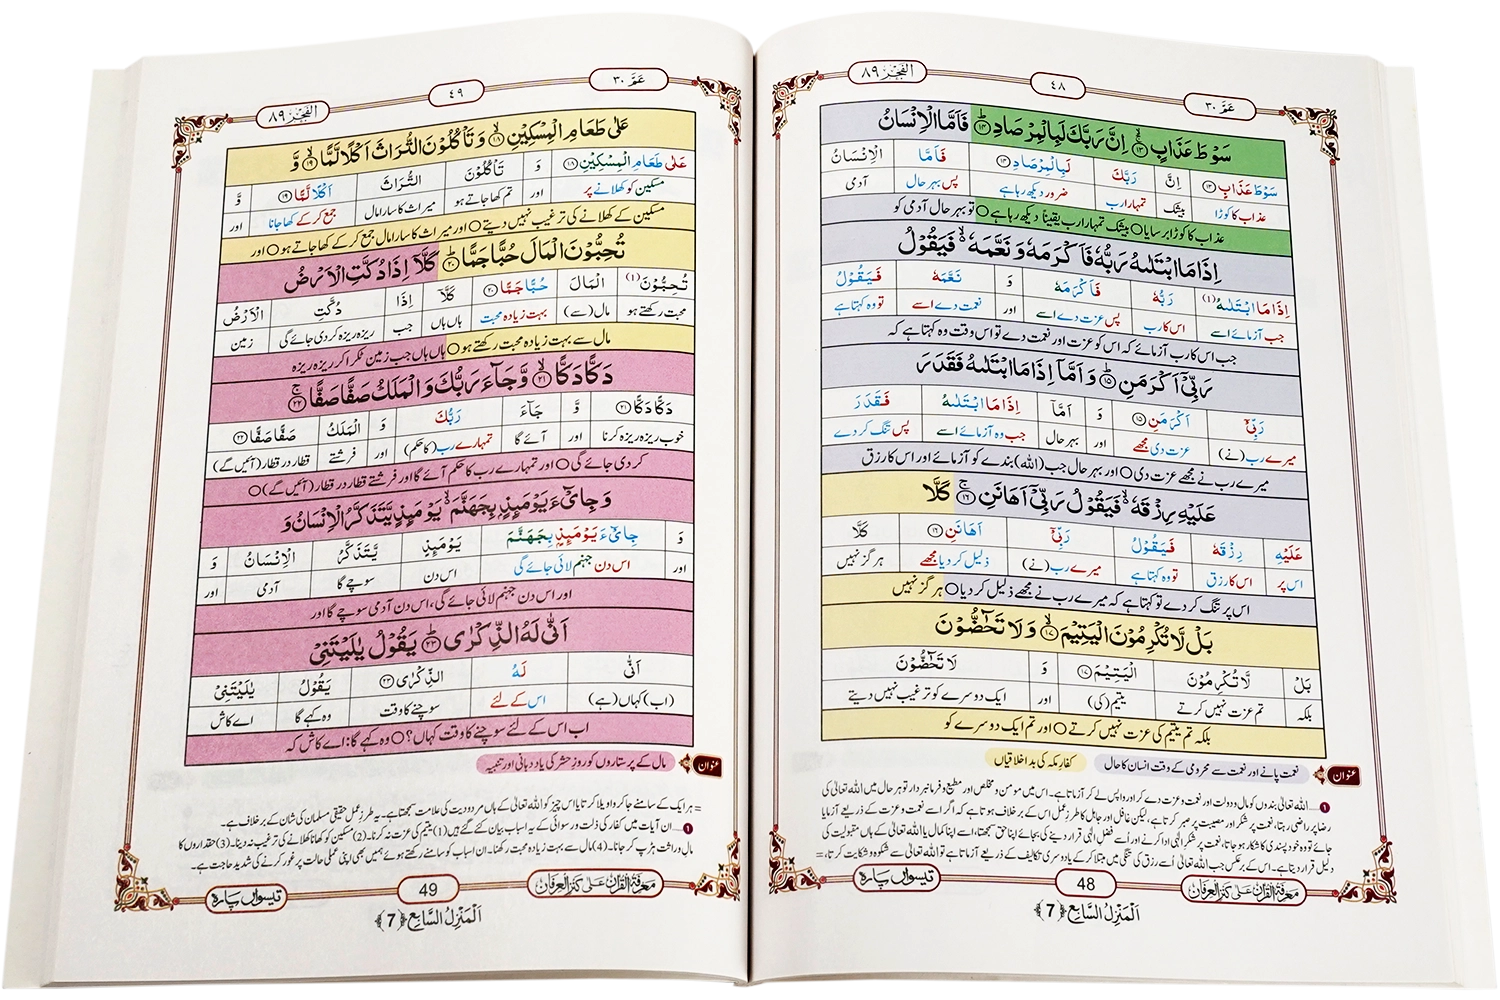 الفجر ٨٩
٤٨
عم ٣٠
سَوْطَ عَذَابٍ ﴿١٣﴾ اِنَّ رَبَّكَ لَبِالْمِرْصَادِ ﴿١٤﴾ فَاَمَّا الْاِنْسَانُ
سَوْطَ عَذَابٍ ﴿١٣﴾ اِنَّ رَبَّكَ لَبِالْمِرْصَادِ ﴿١٤﴾ فَاَمَّا الْاِنْسَانُ
عذاب کا کوڑا بیشک تمہارا رب ضرور دیکھ رہا ہے پس بہرحال آدمی
عذاب کا کوڑا برسایا ○ بیشک تمہارا رب یقینا دیکھ رہا ہے ○ تو بہرحال آدمی کو
اِذَا مَا ابْتَلٰىهُ رَبُّهٗ فَاَكْرَمَهٗ وَ نَعَّمَهٗ فَیَقُوْلُ
اِذَا مَا ابْتَلٰىهُ (1) رَبُّهٗ فَاَكْرَمَهٗ وَ نَعَّمَهٗ فَیَقُوْلُ
جب آزمائے اسے اس کا رب پس عزت دے اسے اور نعمت دے اسے تو وہ کہتا ہے
جب اس کا رب آزمائے کہ اس کو عزت اور نعمت دے تو اس وقت وہ کہتا ہے کہ
رَبِّیْۤ اَكْرَمَنِ ﴿١٥﴾ وَ اَمَّاۤ اِذَا مَا ابْتَلٰىهُ فَقَدَرَ
رَبِّیْۤ اَكْرَمَنِ ﴿١٥﴾ وَ اَمَّاۤ اِذَا مَا ابْتَلٰىهُ فَقَدَرَ
میرے رب (نے) عزت دی مجھے اور بہرحال جب وہ آزمائے اسے پس تنگ کر دے
میرے رب نے مجھے عزت دی ○ اور بہرحال جب (اللہ) بندے کو آزمائے اور اس کا رزق
عَلَیْهِ رِزْقَهٗ فَیَقُوْلُ رَبِّیْۤ اَهَانَنِ ﴿١٦﴾ كَلَّا
عَلَیْهِ رِزْقَهٗ فَیَقُوْلُ رَبِّیْۤ اَهَانَنِ ﴿١٦﴾ كَلَّا
اس پر اس کا رزق تو وہ کہتا ہے میرے رب (نے) ذلیل کر دیا مجھے ہرگز نہیں
اس پر تنگ کر دے تو کہتا ہے کہ میرے رب نے مجھے ذلیل کر دیا ○ ہرگز نہیں
بَلْ لَّا تُكْرِمُوْنَ الْیَتِیْمَ ﴿١٧﴾ وَ لَا تَحٰٓضُّوْنَ
بَلْ لَّا تُكْرِمُوْنَ الْیَتِیْمَ ﴿١٧﴾ وَ لَا تَحٰٓضُّوْنَ
بلکہ تم عزت نہیں کرتے یتیم (کی) اور ایک دوسرے کو ترغیب نہیں دیتے
بلکہ تم یتیم کی عزت نہیں کرتے ○ اور تم ایک دوسرے کو
عنوان نعمت پانے اور نعمت سے محرومی کے وقت انسان کا حال کفارِ مکہ کی بد اخلاقیاں
1 ... اللہ تعالیٰ بندوں کو مال و دولت اور نعمت و عزت دے کر اور واپس لے کر آزماتا ہے۔ اس میں مومن و مخلص اور مطیع و فرمانبردار تو ہر حال میں اللہ تعالیٰ کی
رضا پر راضی رہتا، نعمت پر شکر اور مصیبت پر صبر کرتا ہے، لیکن غافل اور جاہل کا طرزِ عمل اس کے برخلاف ہوتا ہے کہ اگر اسے نعمت و عزت کے ذریعے آزمایا
جائے تو وہ خود پسندی کا شکار ہو جاتا، نعمت پر شکرِ الٰہی ادا کرنے اور اُسے فضلِ الٰہی قرار دینے کی بجائے اپنا حق سمجھتا، اسے اپنا کمال یا اللہ تعالیٰ کے ہاں مقبولیت کی
دلیل قرار دیتا ہے۔ اس کے برعکس جب اللہ تعالیٰ اُسے رزق کی تنگی میں مبتلا کر کے یا دوسری تکالیف کے ذریعے آزماتا ہے تو اللہ تعالیٰ سے شکوہ و شکایت کرتا، =
معرفۃ القرآن علی کنز العرفان
48
تیسواں پارہ
اَلْمَنْزِلُ السَّابِع ﴿7﴾
عم ٣٠
٤٩
الفجر ٨٩
عَلٰى طَعَامِ الْمِسْكِیْنِ ﴿١٨﴾ وَ تَاْكُلُوْنَ التُّرَاثَ اَكْلًا لَّمًّا ﴿١٩﴾ وَّ
عَلٰى طَعَامِ الْمِسْكِیْنِ ﴿١٨﴾ وَ تَاْكُلُوْنَ التُّرَاثَ اَكْلًا لَّمًّا ﴿١٩﴾ وَّ
مسکین کو کھلانے پر اور تم کھا جاتے ہو میراث کا سارا مال جمع کر کے کھا جانا اور
مسکین کے کھلانے کی ترغیب نہیں دیتے ○ اور میراث کا سارا مال جمع کر کے کھا جاتے ہو ○ اور
تُحِبُّوْنَ الْمَالَ حُبًّا جَمًّا ﴿٢٠﴾ كَلَّاۤ اِذَا دُكَّتِ الْاَرْضُ
تُحِبُّوْنَ (1) الْمَالَ حُبًّا جَمًّا ﴿٢٠﴾ كَلَّاۤ اِذَا دُكَّتِ الْاَرْضُ
محبت رکھتے ہو مال (سے) بہت زیادہ محبت ہاں ہاں جب ریزہ ریزہ کر دی جائے گی زمین
مال سے بہت زیادہ محبت رکھتے ہو ○ ہاں ہاں جب زمین ٹکرا کر ریزہ ریزہ
دَكًّا دَكًّا ﴿٢١﴾ وَّ جَآءَ رَبُّكَ وَ الْمَلَكُ صَفًّا صَفًّا ﴿٢٢﴾
دَكًّا دَكًّا ﴿٢١﴾ وَّ جَآءَ رَبُّكَ وَ الْمَلَكُ صَفًّا صَفًّا ﴿٢٢﴾
خوب ریزہ ریزہ کرنا اور آئے گا تمہارے رب (کا حکم) اور فرشتے قطار در قطار (آئیں گے)
کر دی جائے گی ○ اور تمہارے رب کا حکم آئے گا اور فرشتے قطار در قطار (آئیں گے) ○
وَ جِایْٓءَ یَوْمَىٕذٍۭ بِجَهَنَّمَ یَوْمَىٕذٍ یَّتَذَكَّرُ الْاِنْسَانُ وَ
وَ جِایْٓءَ یَوْمَىٕذٍۭ بِجَهَنَّمَ یَوْمَىٕذٍ یَّتَذَكَّرُ الْاِنْسَانُ وَ
اور اس دن جہنم لائی جائے گی اس دن سوچے گا آدمی اور
اور اس دن جہنم لائی جائے گی، اس دن آدمی سوچے گا اور
اَنّٰى لَهُ الذِّكْرٰى ﴿٢٣﴾ یَقُوْلُ یٰلَیْتَنِیْ
اَنّٰى لَهُ الذِّكْرٰى ﴿٢٣﴾ یَقُوْلُ یٰلَیْتَنِیْ
(اب) کہاں (ہے) اس کے لئے سوچنے کا وقت وہ کہے گا اے کاش
اب اس کے لئے سوچنے کا وقت کہاں؟ ○ وہ کہے گا: اے کاش کہ
عنوان مال کے پرستاروں کو روزِ حشر کی یاد دہانی اور تنبیہ
= ہر ایک کے سامنے جا کر واویلا کرتا یا اس چیز کو اللہ تعالیٰ کے ہاں مردودیت کی علامت سمجھتا ہے۔ یہ طرزِ عمل حقیقی مسلمان کی شان کے برخلاف ہے۔
1 ... ان آیات میں کفار کی ذلت و رسوائی کے یہ اسباب بیان کئے گئے ہیں (1) یتیم کی عزت نہ کرنا۔ (2) مسکین کو کھانا کھلانے کی ترغیب نہ دینا۔ (3) حقداروں کا
مالِ وراثت ہڑپ کر جانا۔ (4) مال سے بہت زیادہ محبت رکھنا۔ ان اسباب کو سامنے رکھتے ہوئے ہمیں بھی اپنی عملی حالت پر غور کرنے کی شدید حاجت ہے۔
معرفۃ القرآن علی کنز العرفان
49
تیسواں پارہ
اَلْمَنْزِلُ السَّابِع ﴿7﴾